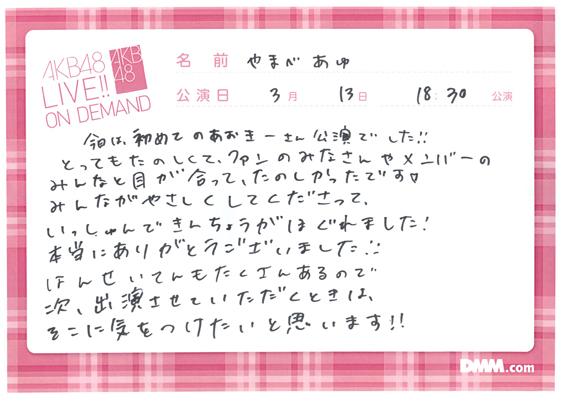 AKB48
LIVE!!
ON DEMAND
AKB
48
名前 やまべあゆ
公演日 3月 13日 18:30 公演
今日は、初めてのあおきーさん公演でした!!
とってもたのしくて、ファンのみなさんやメンバーの
みんなと目が合って、たのしかったです♡
みんながやさしくしてくださって、
いっしゅんできんちょうがほぐれました!
本当にありがとうございました!!
はんせいてんもたくさんあるので
次、出演させていただくときは、
そこに気をつけたいと思います!!
DMM.com